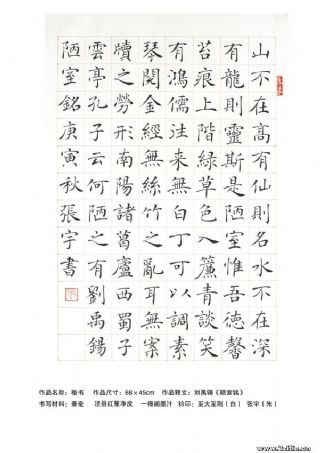 山不在高有仙則名水不在深
有龍則靈斯是陋室惟吾德馨
苔痕上階綠草色入簾青談笑
有鴻儒往來無白丁可以調素
琴閱金經無絲竹之亂耳無案
牘之勞形南陽諸葛廬西蜀子
雲亭孔子云何陋之有劉禹錫
陋室銘庚寅秋張宇書
作品名称：楷书 作品尺寸：68×45cm 作品释文：刘禹锡《陋室铭》
书写材料：兼毫 泾县红星净皮 一得阁墨汁 钤印：至大至刚（白） 张宇（朱）